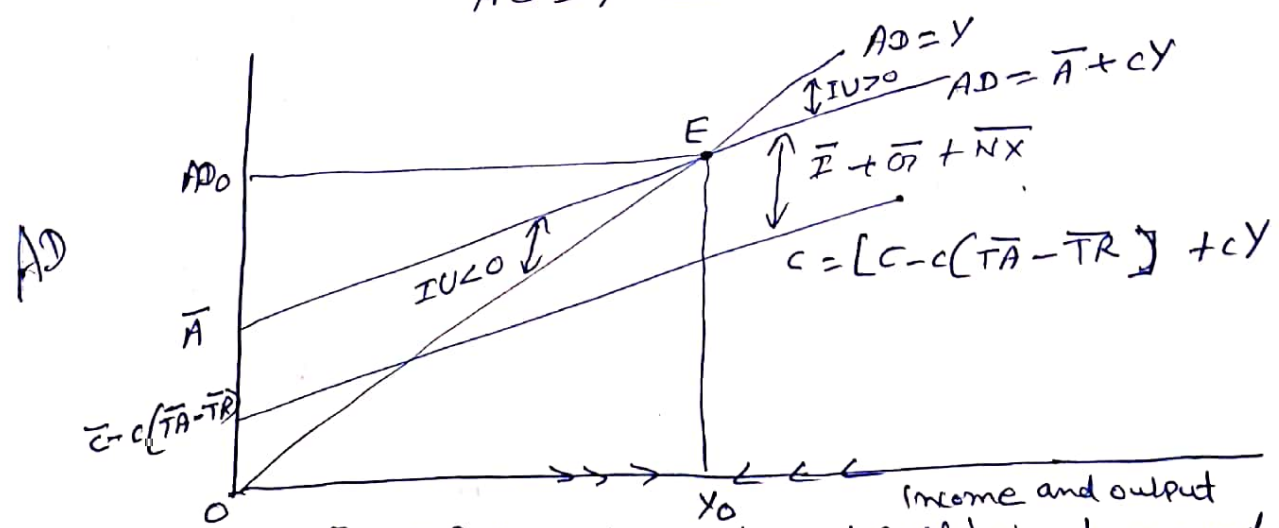 AD = Y
IU>0
AD = A̅ + cY
E
I̅ + G̅ + N̅X̅
AD₀
AD
C = [C̅ - c(T̅A̅ - T̅R̅] + cY
IU<0
A̅
C̅ - c(T̅A̅ - T̅R̅)
O
Y₀
Income and output